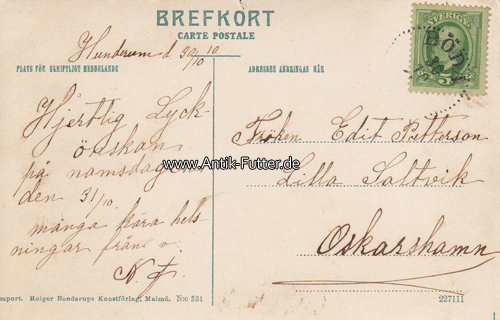 BREFKORT
CARTE POSTALE
Hunderum d 30/10 10
PLATS FÖR SKRIFTLIGT MEDDELANDE
ADRESSEN ANBRINGAS HÄR
SVERIGE
5
Hjertlig Lyck-
önskan
på namsdagen
den 31/10.
många kära hels
ningar från
N. J.
Fröken Edit Petterson
Lilla Saltvik
Oskarshamn
www.Antik-Futter.de
Import. Holger Ronderups Konstförlag, Malmö. N:o 531
227111